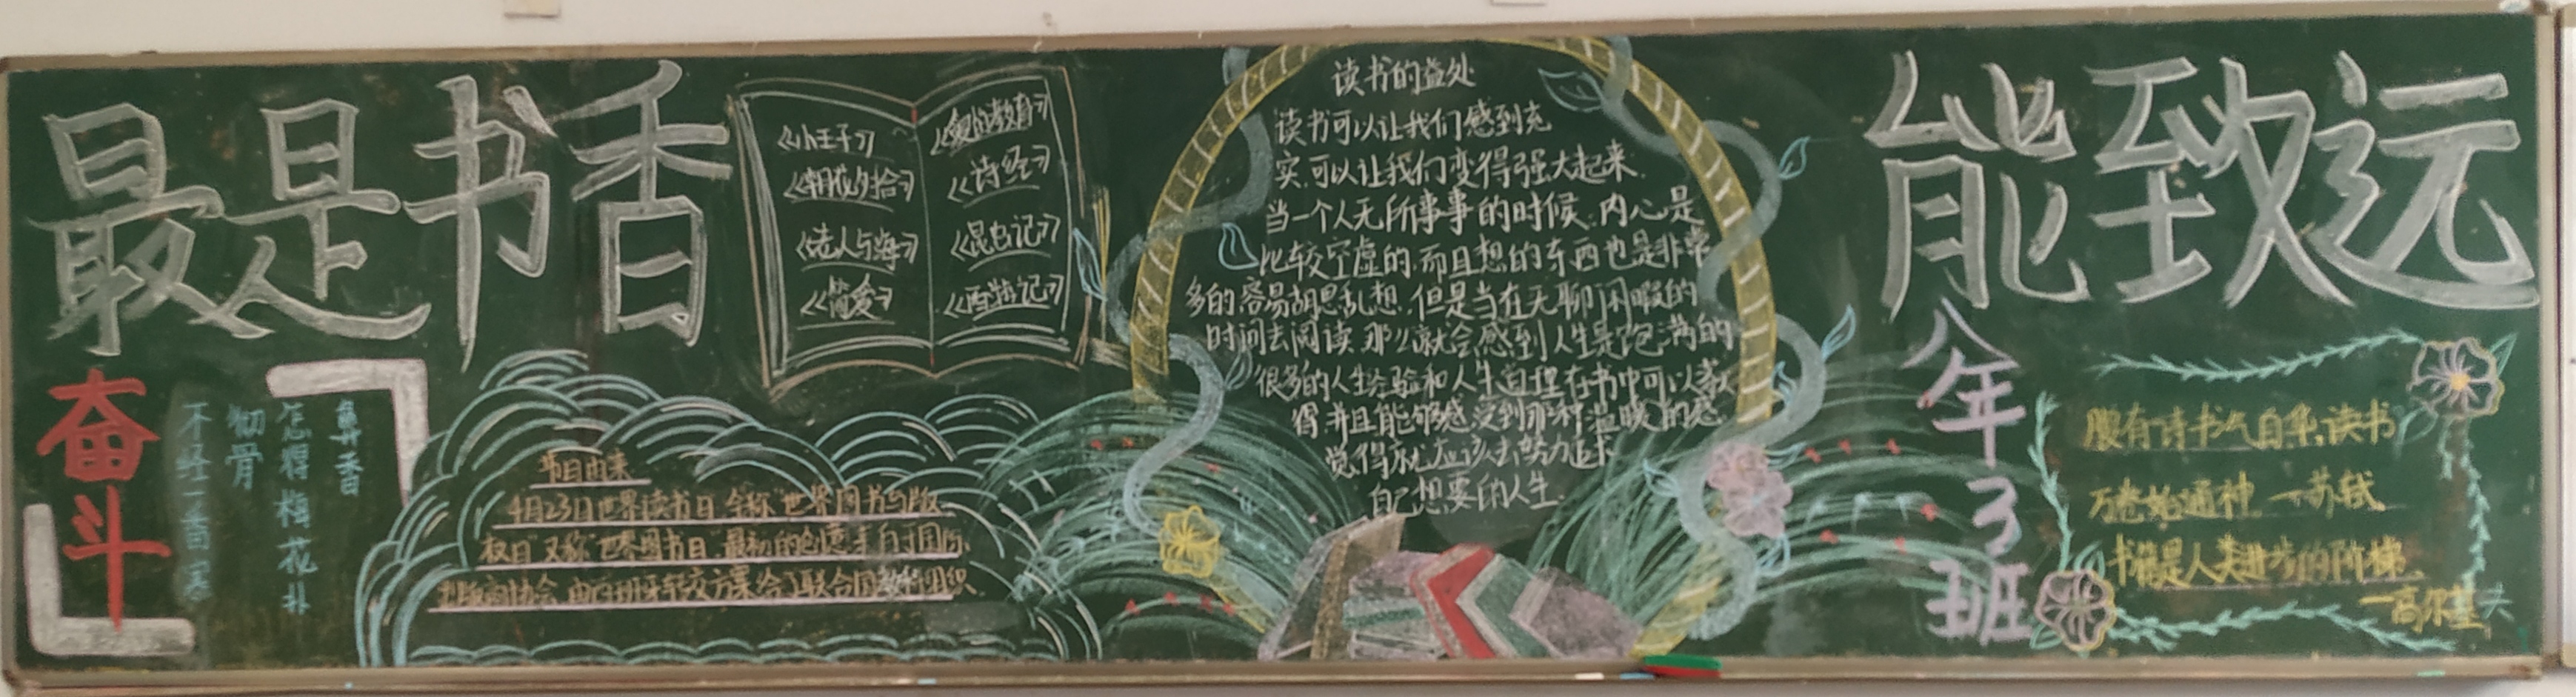 最是书香
能致远
《小王子》
《朝花夕拾》
《老人与海》
《简爱》
《爱的教育》
《诗经》
《昆虫记》
《西游记》
奋斗
不经一番寒
彻骨
怎得梅花扑
鼻香
节日由来
4月23日世界读书日 全称"世界图书与版
权日"又称"世界图书日"最初的创意来自于国际
出版商协会.由西班牙转交方案给了联合国教科组织
读书的益处
读书可以让我们感到充
实,可以让我们变得强大起来.
当一个人无所事事的时候,内心是
比较空虚的,而且想的东西也是非常
多的容易胡思乱想,但是当在无聊闲暇的
时间去阅读,那么就会感到人生是饱满的
很多的人生经验和人生道理在书中可以获
得并且能够感受到那种温暖的感
觉得就应该去努力追求
自己想要的人生.
八年
班
腹有诗书气自华,读书
万卷始通神.—苏轼
书籍是人类进步的阶梯.
—高尔基